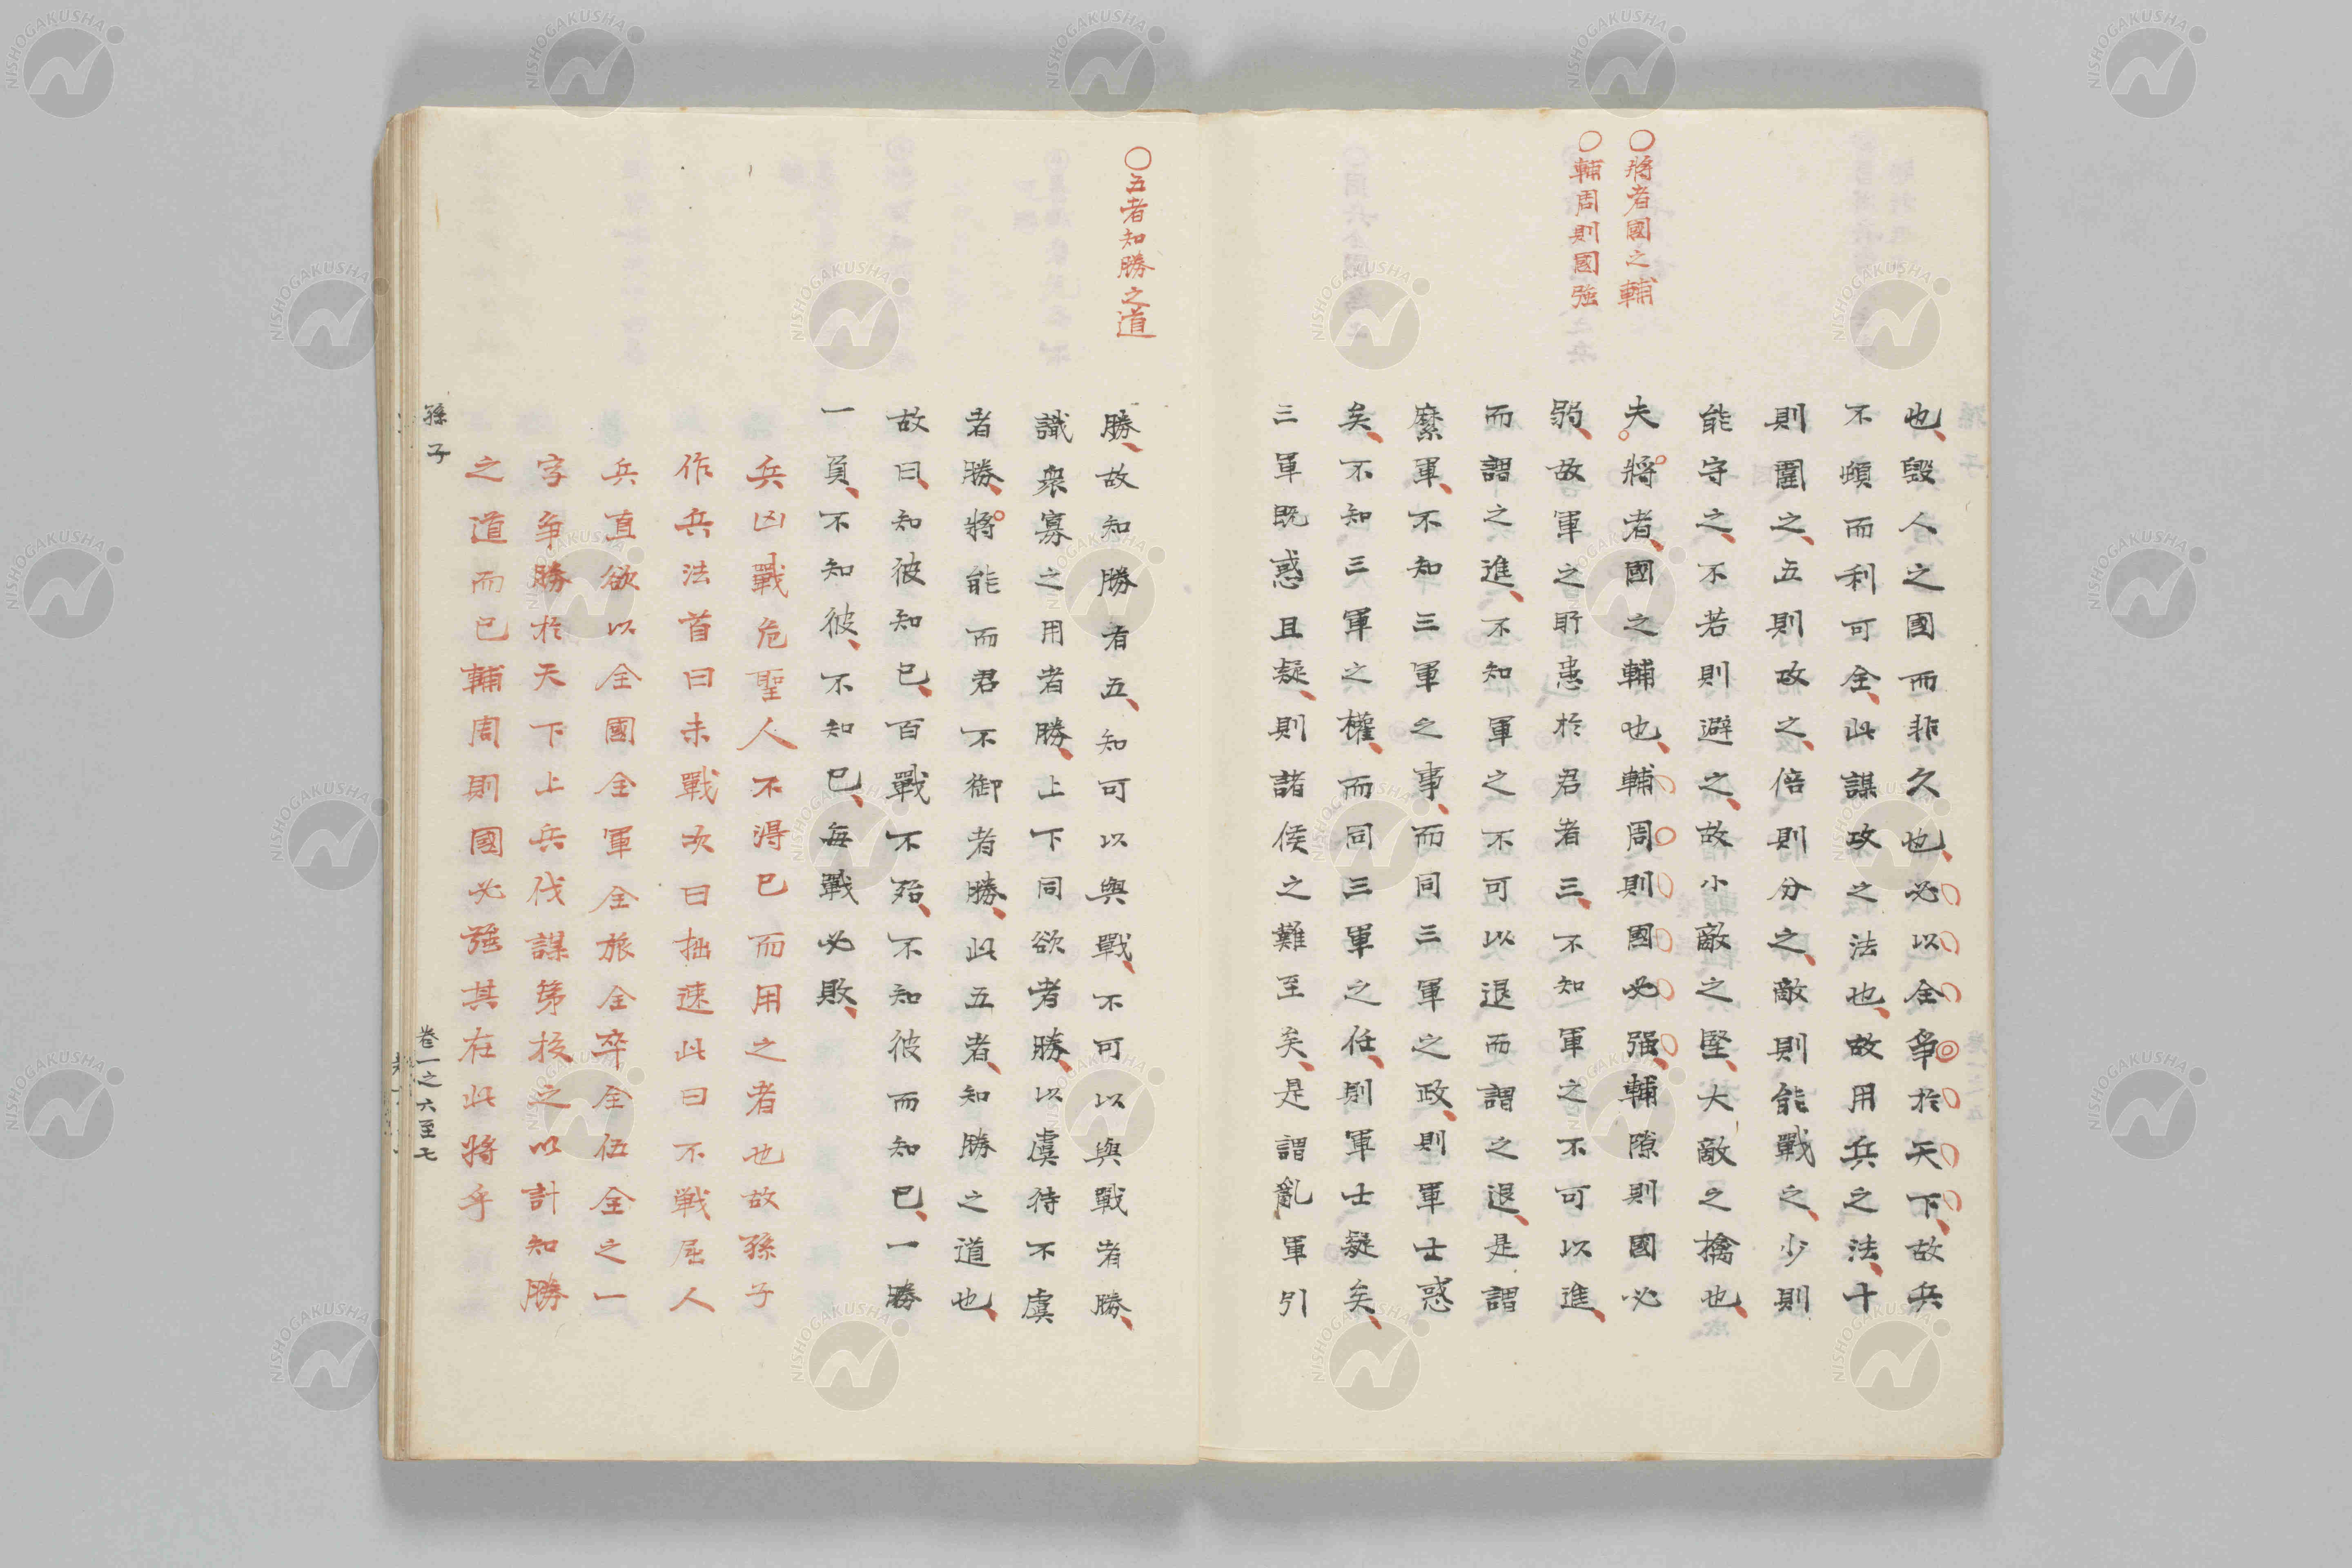 〇將者國之輔
〇輔周則國強
也、毀人之國而非久也、必以全爭於天下、故兵
不頓而利可全、此謀攻之法也、故用兵之法、十
則圍之、五則攻之、倍則分之、敵則能戰之、少則
能守之、不若則避之、故小敵之堅、大敵之擒也、
夫將者、國之輔也、輔周則國必强、輔隙則國必
弱、故軍之所患於君者三、不知軍之不可以進、
而謂之進、不知軍之不可以退而謂之退、是謂
縻軍、不知三軍之事、而同三軍之政、則軍士惑
矣、不知三軍之權、而同三軍之任、則軍士疑矣、
三軍既惑且疑、則諸侯之難至矣、是謂亂軍引
〇五者知勝之道
勝、故知勝有五、知可以與戰、不可以與戰者勝、
識衆寡之用者勝、上下同欲者勝、以虞待不虞
者勝、將能而君不御者勝、此五者、知勝之道也、
故曰、知彼知已、百戰不殆、不知彼而知已、一勝
一負、不知彼、不知已、每戰必敗、
兵凶戰危聖人不得已而用之者也故孫子
作兵法首曰未戰次曰拙速此曰不戰屈人
兵直欲以全國全軍全旅全卒全伍全之一
字爭勝於天下上兵伐謀第校之以計知勝
之道而已輔周則國必强其在此將乎
孫子
卷一之六至七
NISHOGAKUSHA